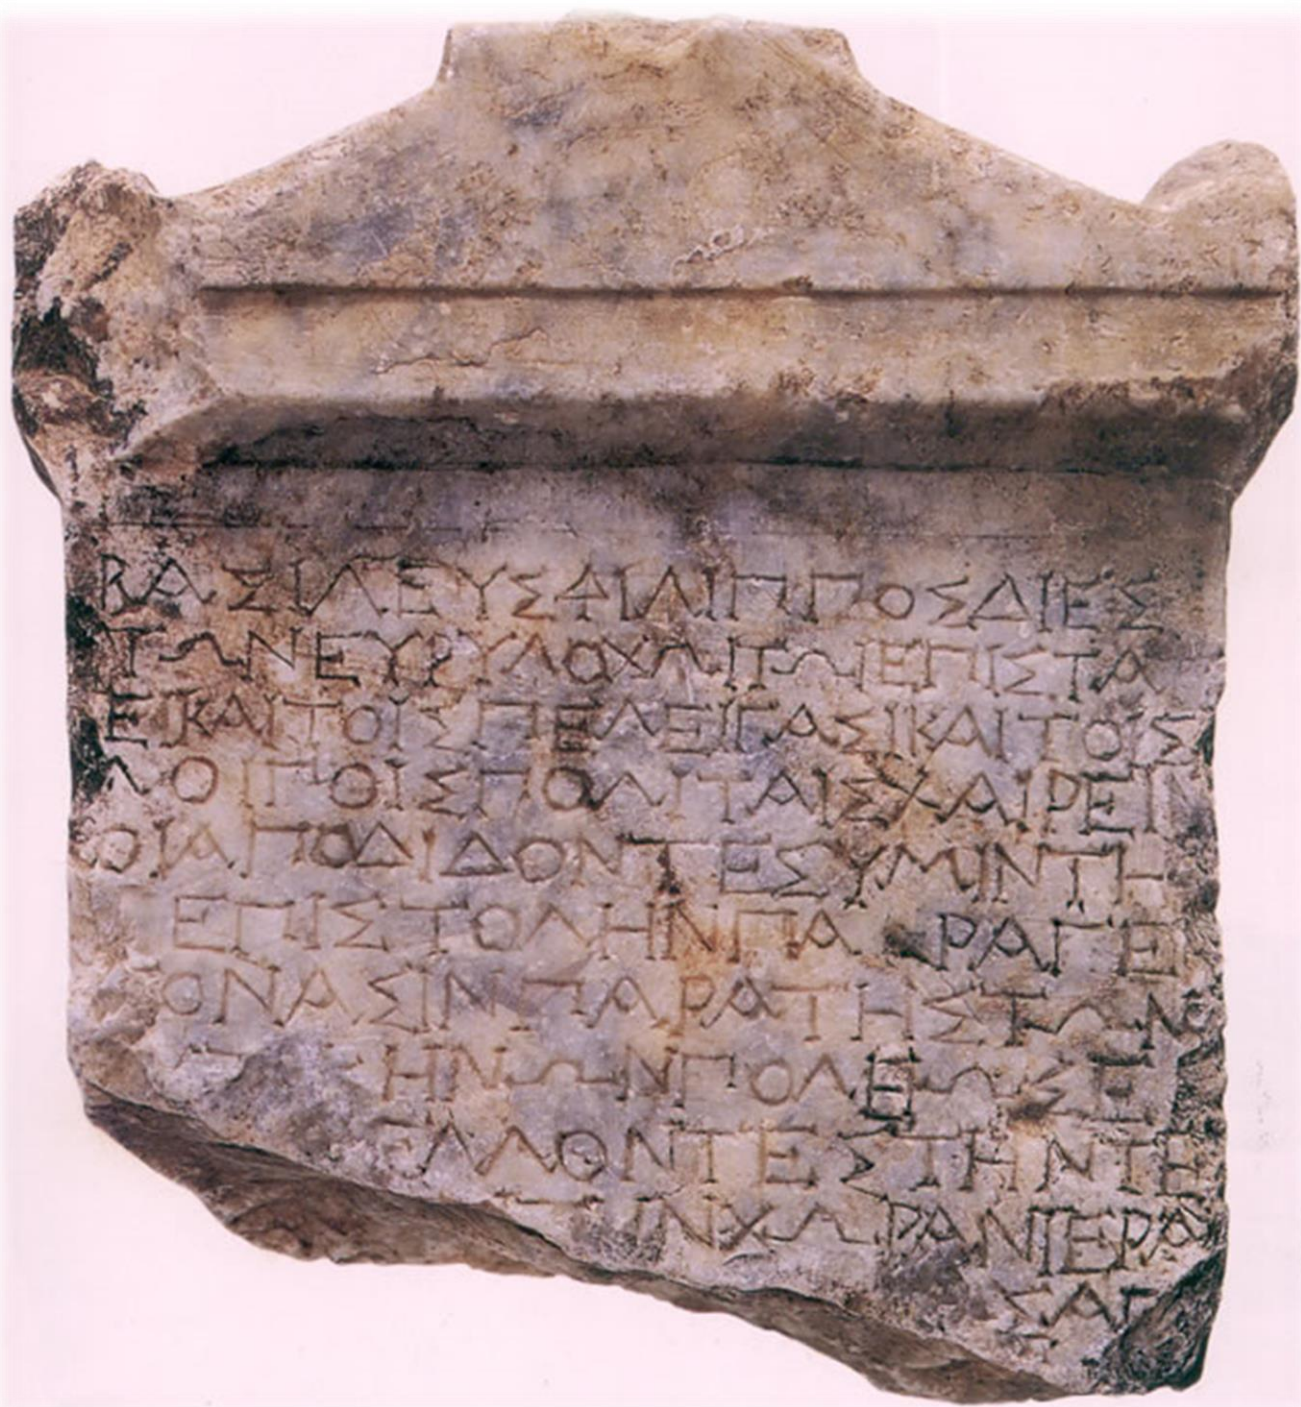 ΒΑΣΙΛΕΥΣΦΙΛΙΠΠΟΣΔΙΕΣ
ΤΩΝΕΥΡΥΛΟΧΩΙΤΩΙΕΠΙΣΤΑ
ΕΙΚΑΙΤΟΙΣΠΕΛΕΙΓΑΣΙΚΑΙΤΟΙΣ
ΛΟΙΠΟΙΣΠΟΛΙΤΑΙΣΧΑΙΡΕΙΝ
ΟΙΑΠΟΔΙΔΟΝΤΕΣΥΜΙΝΤΗ
ΕΠΙΣΤΟΛΗΝΠΑ ΡΑΓΕ
ΟΝΑΣΙΝΠΑΡΑΤΗΣΤΩΝ
ΗΝΩΝΠΟΛΕΩΣΕ
ΕΛΛΟΝΤΕΣΤΗΝΤΕ
ΗΝΧΩΡΑΝΙΕΡΑ
ΣΑΓ